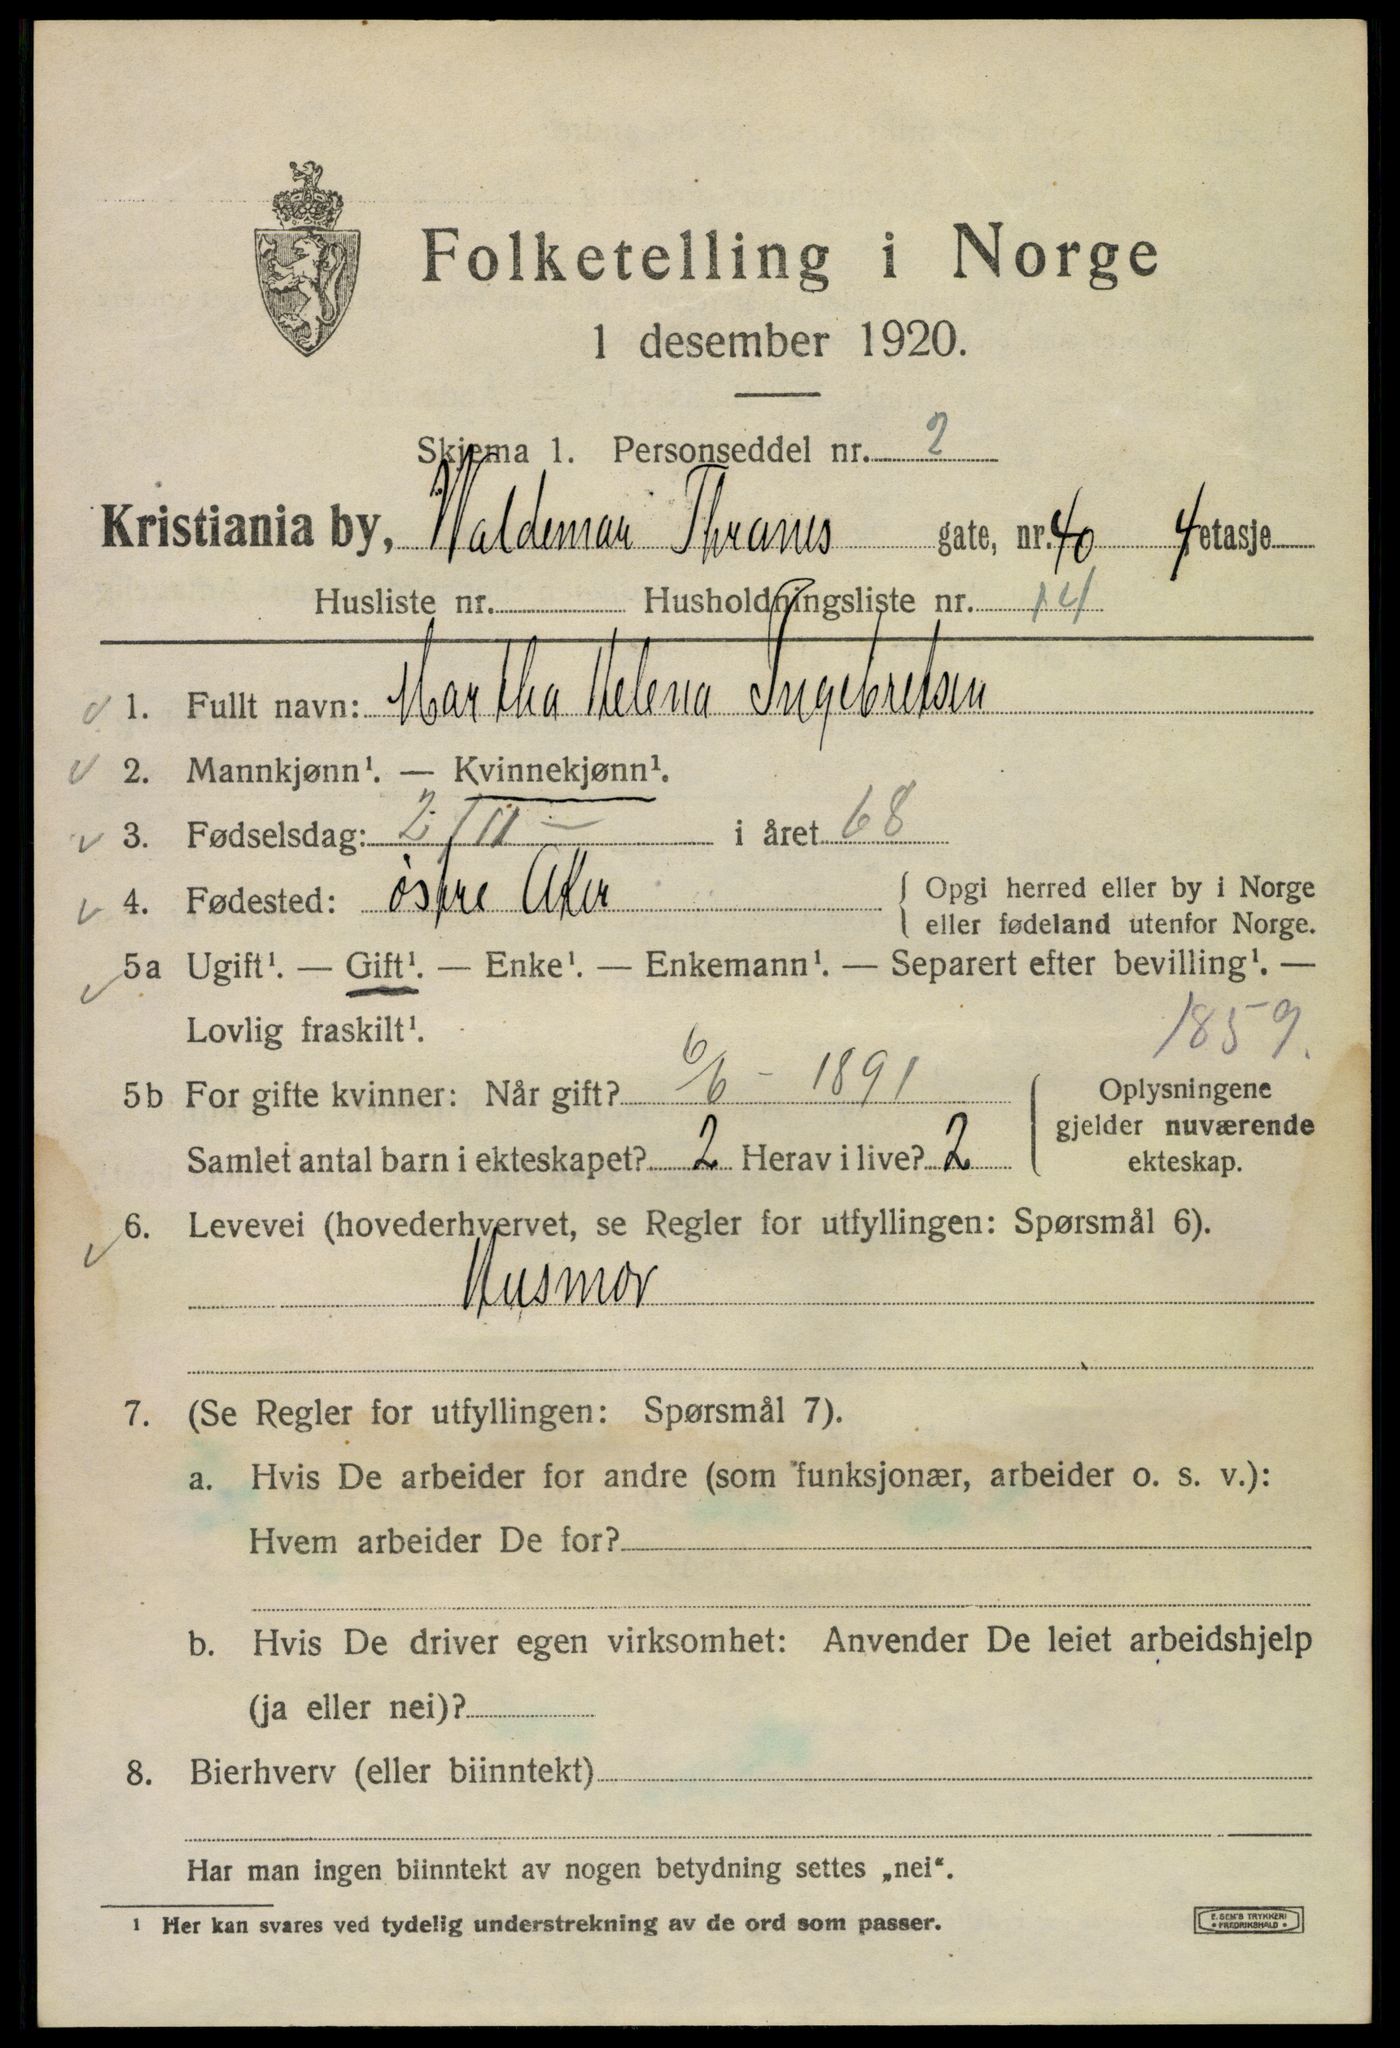 Folketelling i Norge
1 desember 1920.
Skjema 1. Personseddel nr. 2
Kristiania by, Waldemar Thranes gate, nr. 40 4 etasje
Husliste nr. Husholdningsliste nr. 14
1. Fullt navn: Martha Helena Ingebretsen
2. Mannkjønn¹. — Kvinnekjønn¹.
3. Fødselsdag: 2/11 — i året 68
4. Fødested: østre Aker { Opgi herred eller by i Norge
eller fødeland utenfor Norge.
5a Ugift¹. — Gift¹. — Enke¹. — Enkemann¹. — Separert efter bevilling¹. —
Lovlig fraskilt¹.
1859.
5b For gifte kvinner: Når gift? 6/6 - 1891
Samlet antal barn i ekteskapet? 2 Herav i live? 2
Oplysningene
gjelder nuværende
ekteskap.
6. Levevei (hovederhvervet, se Regler for utfyllingen: Spørsmål 6).
Husmor
7. (Se Regler for utfyllingen: Spørsmål 7).
a. Hvis De arbeider for andre (som funksjonær, arbeider o. s. v.):
Hvem arbeider De for?
b. Hvis De driver egen virksomhet: Anvender De leiet arbeidshjelp
(ja eller nei)?
8. Bierhverv (eller biinntekt)
Har man ingen biinntekt av nogen betydning settes „nei“.
1 Her kan svares ved tydelig understrekning av de ord som passer.
E. SEM'S TRYKKERI
• FREDRIKSHALD •